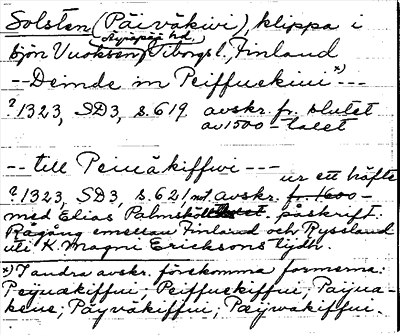 Solsten (Päiväkivi), klippa i
Äyräpää hd.
sjön Vuoksen, Viborgs l., Finland
-- Deinde in Peiffuekiui *) ---
? 1323, SD3, s. 619 avskr. fr. slutet
av 1500-talet
-- till Peiuäkiffwi ---
ur ett häfte
? 1323, SD3, s. 621 not. avskr. fr. 1600-
med Elias Palmsköld påskrift:
Rågång emellan Finland och Ryssland
uti K. Magni Ericksons tijder.
*) I andra avskr. förekomma formerna:
Peijuäkiffui; Peiffuekiffui; Paijua-
keue; Päyväkiffui; Pæijwäkiffui.